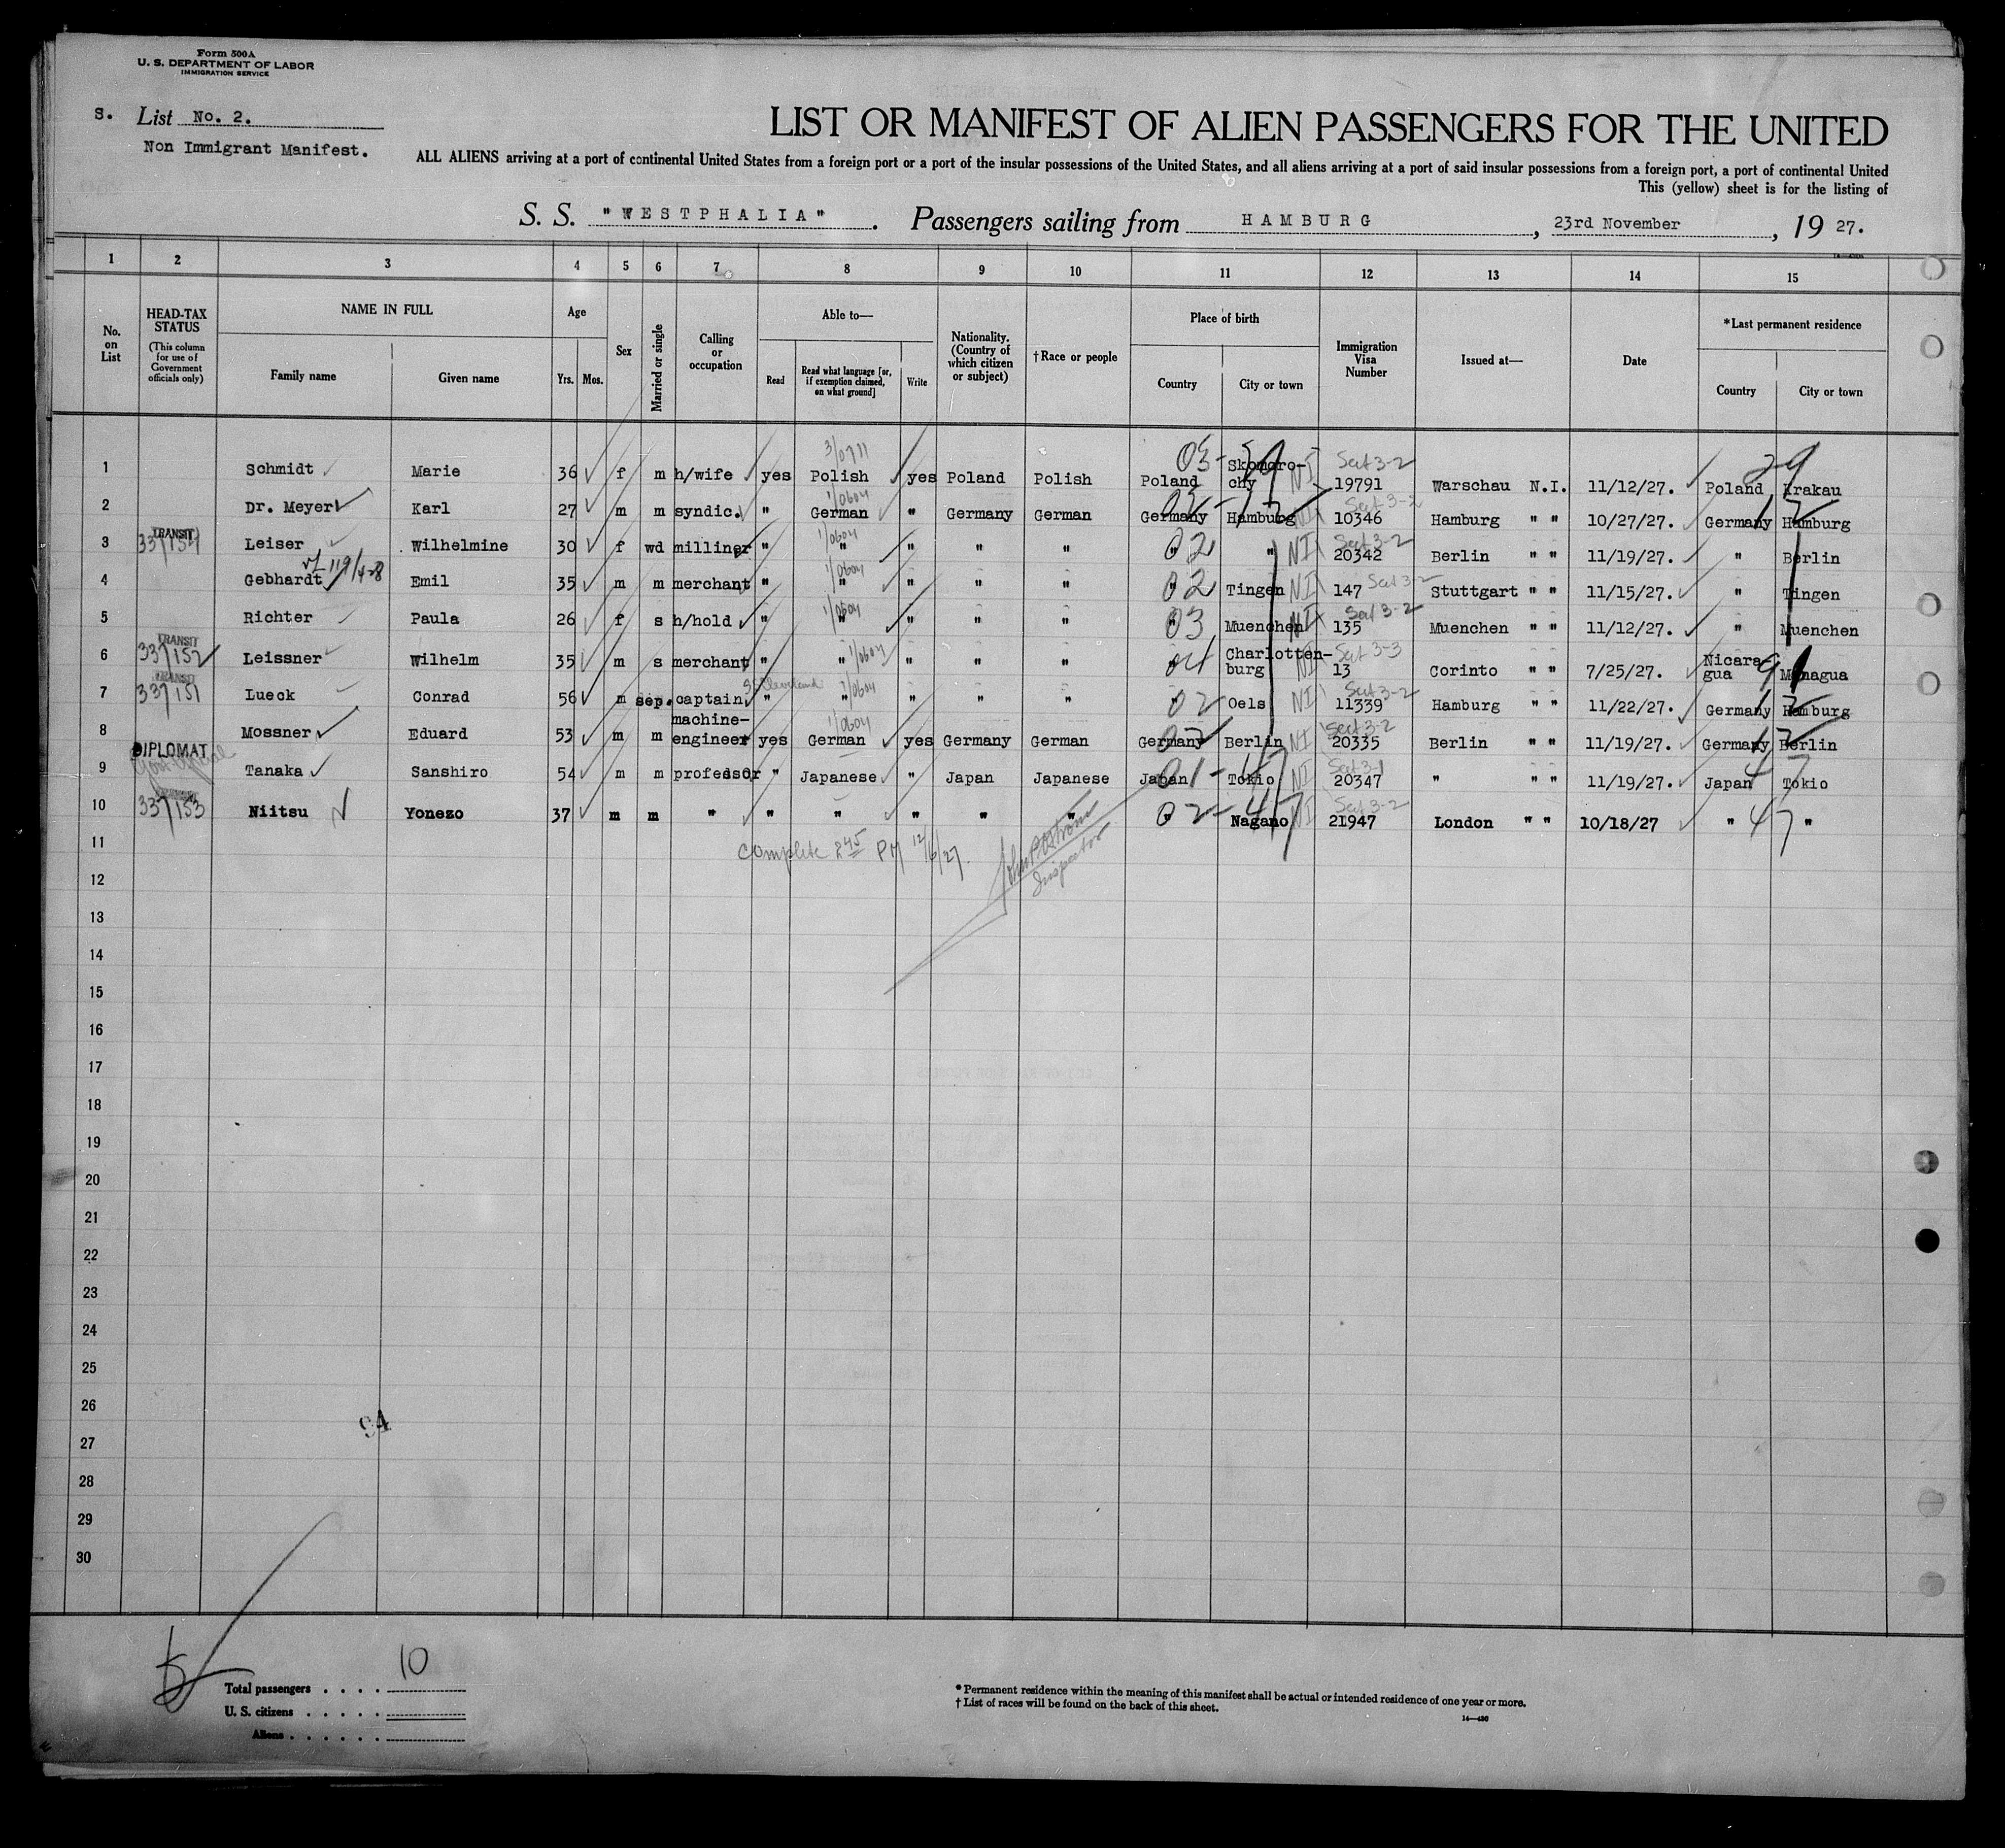 Form 500A
U. S. DEPARTMENT OF LABOR
IMMIGRATION SERVICE
S. List No. 2.
Non Immigrant Manifest.
LIST OR MANIFEST OF ALIEN PASSENGERS FOR THE UNITED
ALL ALIENS arriving at a port of continental United States from a foreign port or a port of the insular possessions of the United States, and all aliens arriving at a port of said insular possessions from a foreign port, a port of continental United
This (yellow) sheet is for the listing of
S. S. "WESTPHALIA". Passengers sailing from HAMBURG, 23rd November, 19 27.
1 2 3 4 5 6 7 8 9 10 11 12 13 14 15
No. on List
HEAD-TAX STATUS (This column for use of Government officials only)
NAME IN FULL Family name Given name
Age Yrs. Mos.
Sex
Married or single
Calling or occupation
Able to— Read Read what language [or, if exemption claimed, on what ground] Write
Nationality. (Country of which citizen or subject)
†Race or people
Place of birth Country City or town
Immigration Visa Number
Issued at—
Date
*Last permanent residence Country City or town
1 Schmidt Marie 36 f m h/wife yes Polish yes Poland Polish Poland Skomoro-chy NI 19791 Sect 3-2 Warschau N.I. 11/12/27. Poland Krakau
2 Dr. Meyer Karl 27 m m syndic. " German " Germany German Germany Hamburg NI 10346 Sect 3-2 Hamburg " " 10/27/27. Germany Hamburg
3 TRANSIT Leiser Wilhelmine 30 f wd milliner " " " " " " " NI 20342 Sect 3-2 Berlin " " 11/19/27. " Berlin
4 Gebhardt Emil 35 m m merchant " " " " " Tingen NI 147 Sect 3-2 Stuttgart " " 11/15/27. " Tingen
5 Richter Paula 26 f s h/hold " " " " " " Muenchen NI 135 Sect 3-2 Muenchen " " 11/12/27. " Muenchen
6 TRANSIT 337152 Leissner Wilhelm 35 m s merchant " " " " " " Charlotten-burg NI 13 Sect 3-3 Corinto " " 7/25/27. Nicara-gua Managua
7 TRANSIT 337151 Lueck Conrad 56 m sep. captain " " " " " " Oels NI 11339 Sect 3-2 Hamburg " " 11/22/27. Germany Hamburg
8 Mossner Eduard 53 m m machine-engineer yes German yes Germany German Germany Berlin NI 20335 Sect 3-2 Berlin " " 11/19/27. Germany Berlin
9 DIPLOMAT Tanaka Sanshiro 54 m m professor " Japanese " Japan Japanese Japan Tokio NI 20347 Sect 3-1 " " " 11/19/27. Japan Tokio
10 337153 Niitsu Yonezo 37 m m " " " " " " " Nagano NI 21947 Sect 3-2 London " " 10/18/27 " "
11 Complete 2 45 PM 12/6/27. Inspector
12
13
14
15
16
17
18
19
20
21
22
23
24
25
26
94
27
28
29
30
Total passengers . . . . 10
U. S. citizens . . . . .
Aliens . . . . . .
* Permanent residence within the meaning of this manifest shall be actual or intended residence of one year or more.
† List of races will be found on the back of this sheet.
14—430